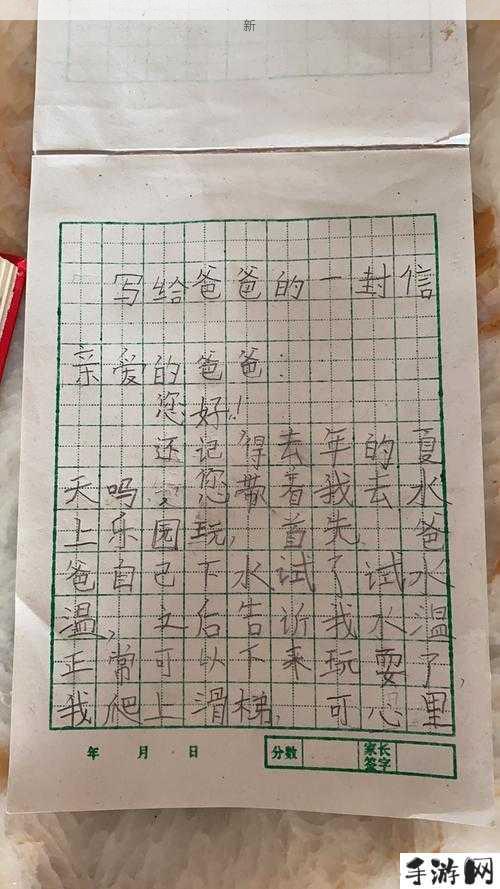 新
写给爸爸的一封信
亲爱的爸爸:
您好!
还记得去年的夏
天吗您带着我去水
上乐园玩,首先爸
爸自己下水试了试水
温,之后告诉我水温
正常可以下来玩耍了,
我爬上滑梯,可心里
年 月 日 分数 家长签字
手游网